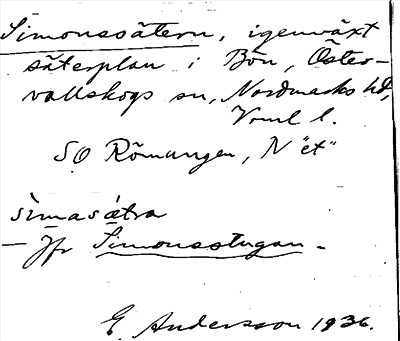 Simonssätern, igenväxt
säterplan i Bön, Öster-
vallskogs sn, Nordmarks hd,
Vrml l.
SO Römungen, N "et"
sìmasǽtra
— Jfr Simonsstugan.
E. Andersson 1936.